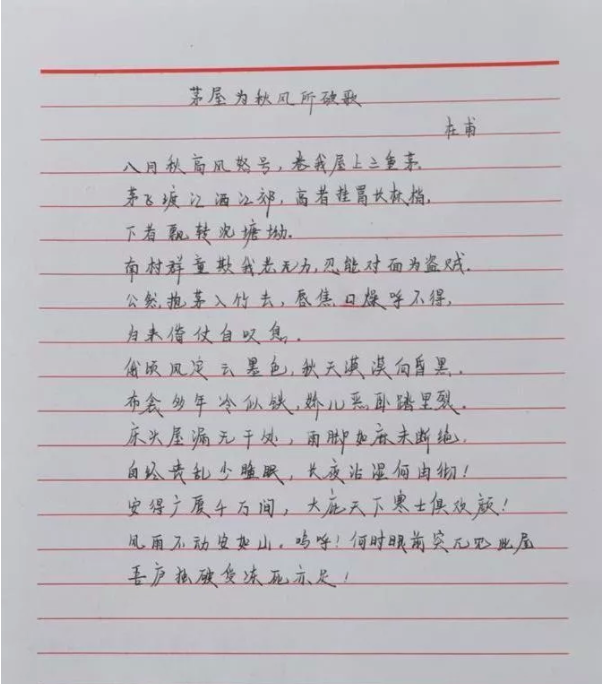 茅屋为秋风所破歌
杜甫
八月秋高风怒号，卷我屋上三重茅.
茅飞渡江洒江郊，高者挂罥长林梢.
下者飘转沉塘坳.
南村群童欺我老无力，忍能对面为盗贼.
公然抱茅入竹去，唇焦口燥呼不得，
归来倚仗自叹息.
俄顷风定云墨色，秋天漠漠向昏黑.
布衾多年冷似铁，娇儿恶卧踏里裂.
床头屋漏无干处，雨脚如麻未断绝.
自经丧乱少睡眠，长夜沾湿何由彻！
安得广厦千万间，大庇天下寒士俱欢颜！
风雨不动安如山。呜呼！何时眼前突兀见此屋
吾庐独破受冻死亦足！